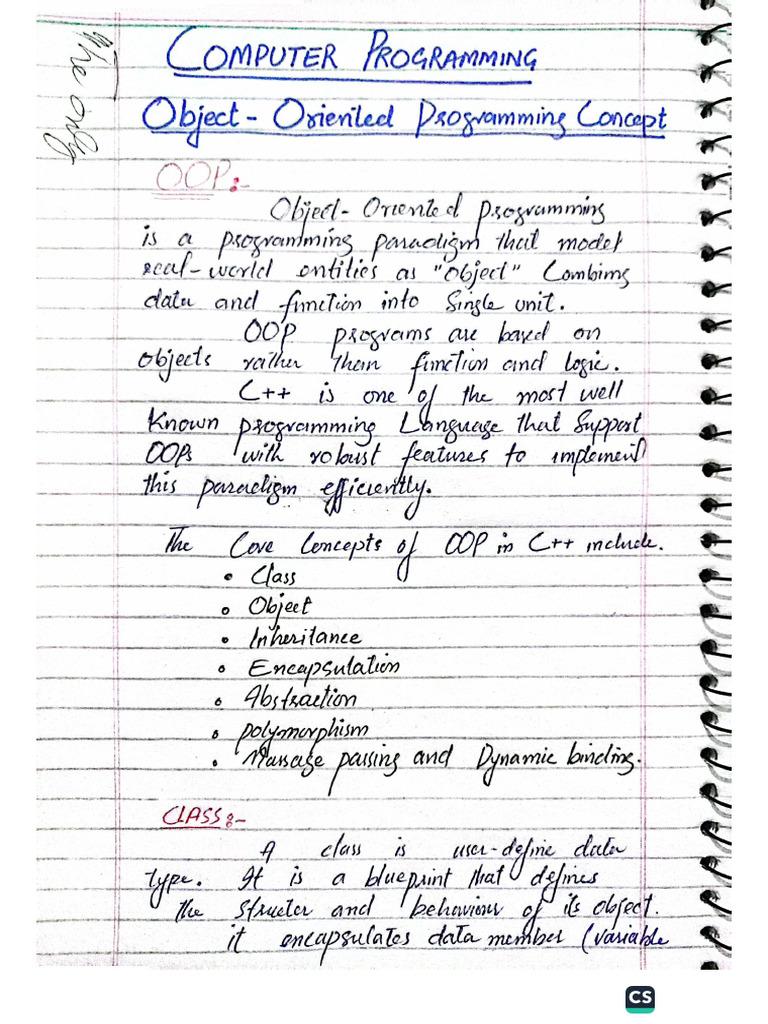 Theory
COMPUTER PROGRAMMING
Object-Oriented Programming Concept
OOP:-
Object-Oriented programming
is a programming paradigm that model
real-world entities as "object" Combining
data and function into Single unit.
OOP programs are based on
objects rather than function and logic.
C++ is one of the most well
Known programming Language that Support
OOPs with robust features to implement
this paradigm efficiently.
The Core Concepts of OOP in C++ include.
• Class
• Object
• Inheritance
• Encapsulation
• Abstraction
• polymorphism
• Massage passing and Dynamic binding.
CLASS:-
A class is user-define data
type. It is a blueprint that defines
the structer and behaviour of its object.
it encapsulates data member (variable
CS